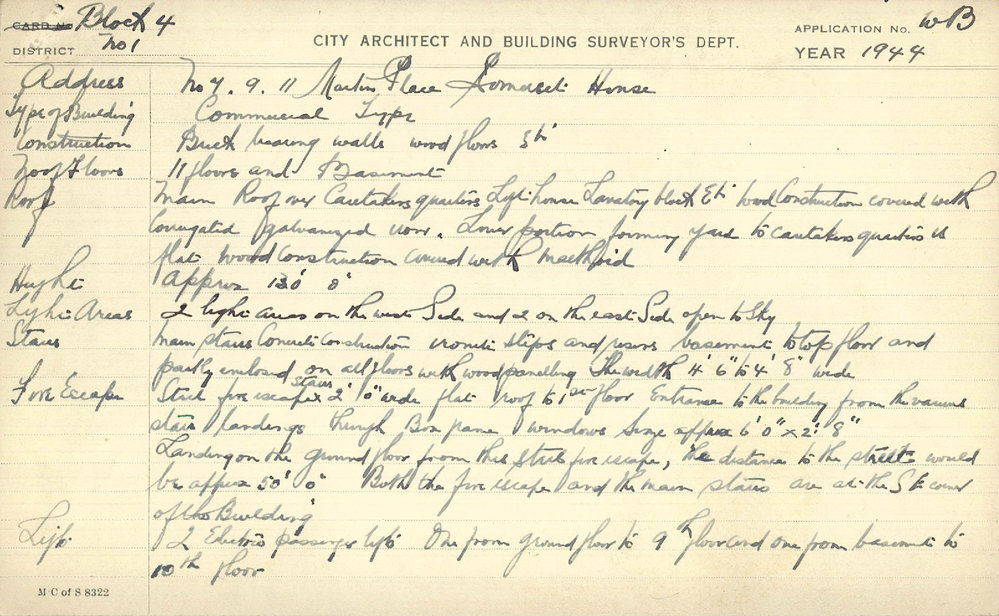 CARD No Block 4
DISTRICT No 1
CITY ARCHITECT AND BUILDING SURVEYOR'S DEPT.
APPLICATION No. WB
YEAR 1944
Address No 7. 9. 11 Martin Place Somerset House
Type of Building Commercial Type
Construction Brick bearing walls wood floors Etc
No of Floors 11 floors and Basement
Roof Main Roof over Caretakers quarters Lift house Lavatory block Etc Wood Construction covered with
Corrugated galvanized iron. Lower portion forming yard to caretakers quarters is
flat wood construction covered with Malthoid
Height Approx 130' 0"
Light Areas 2 light areas on the west Side and 2 on the east Side open to Sky
Stairs Main stairs Concrete Construction ironite steps and risers basement to top floor and
partly enclosed on all floors with wood panelling The width 4' 6" to 4' 8" wide
Fire Escape Steel fire escape stairs 2' 0" wide flat roof to 1st floor Entrance to the building from the various
stair landings through Box frame windows Size approx 6' 0" x 2' 8"
Landing on the ground floor from this steel fire escape, the distance to the street would
be approx 50' 0" Both the fire escape and the main stairs are at the SE corner
of the Building
Lifts 2 Electric passenger lifts One from ground floor to 9th floor and one from basement to
10th floor
M C of S 8322